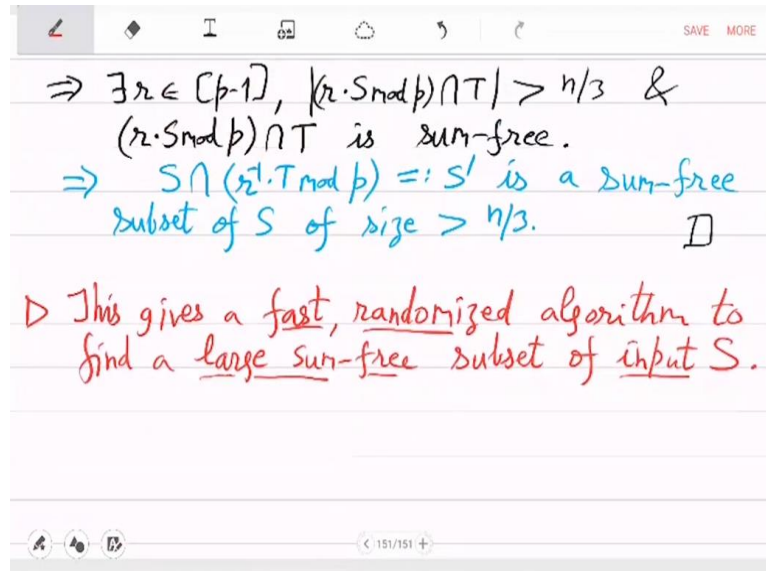 SAVE MORE
⇒ ∃r ∈ [p-1], |(r·S mod p) ∩ T| > n/3 &
(r·S mod p) ∩ T is sum-free.
⇒ S ∩ (r⁻¹·T mod p) =: S' is a sum-free
subset of S of size > n/3. □
▷ This gives a fast, randomized algorithm to
find a large sum-free subset of input S.
< 151/151 +